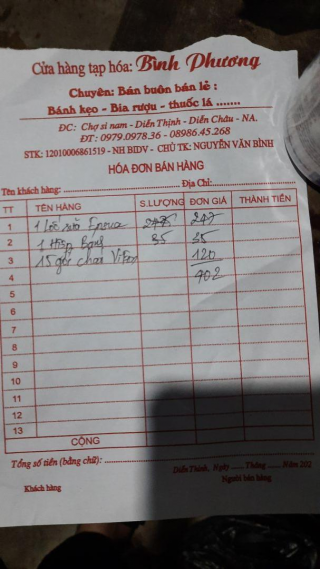 Cửa hàng tạp hóa: Bình Phương
Chuyên: Bán buôn bán lẻ :
Bánh kẹo - Bia rượu - thuốc lá .......
ĐC: Chợ si nam - Diễn Thịnh - Diễn Châu - NA.
ĐT: 0979.0978.36 - 08986.45.268
STK: 12010006861519 - NH BIDV - CHỦ TK: NGUYỄN VĂN BÌNH
HÓA ĐƠN BÁN HÀNG
Tên khách hàng: ........ Địa Chỉ: ........
TT TÊN HÀNG S.LƯỢNG ĐƠN GIÁ THÀNH TIỀN
1 1 247
2 1 Hộp 35 35
3 15 gói 120
4 402
5
6
7
8
9
10
11
12
13
CỘNG
Tổng số tiền (bằng chữ): ........
Diễn Thịnh, Ngày ...... Tháng ...... Năm 202
Khách hàng Người bán hàng